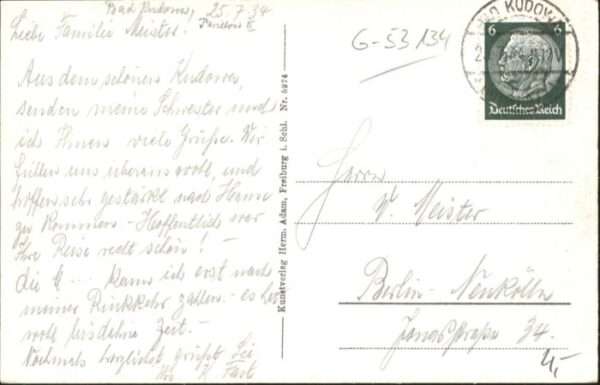 Bad Kudowa, 25.7.34
Liebe Familie Meister!
Aus dem schönen Kudowa,
senden meine Schwester und
ich Ihnen viele Grüße. Wir
fühlen uns überaus wohl, und
hoffen sehr gestärkt nach Hause
zu kommen. - Hoffentlich war
Ihre Reise recht schön! -
die € ... kann ich erst nach
meiner Rückkehr zahlen. - es hat
wohl bis dahin Zeit. -
Nochmals herzlichst grüßt Sie
Kunstverlag Herm. Adam, Freiburg i. Schl. Nr. 5974
G-53134
BAD KUDOWA
6 6
Deutsches Reich
Herrn
W. Meister
Berlin-Neukölln
Jonasstraße 34.
4,-